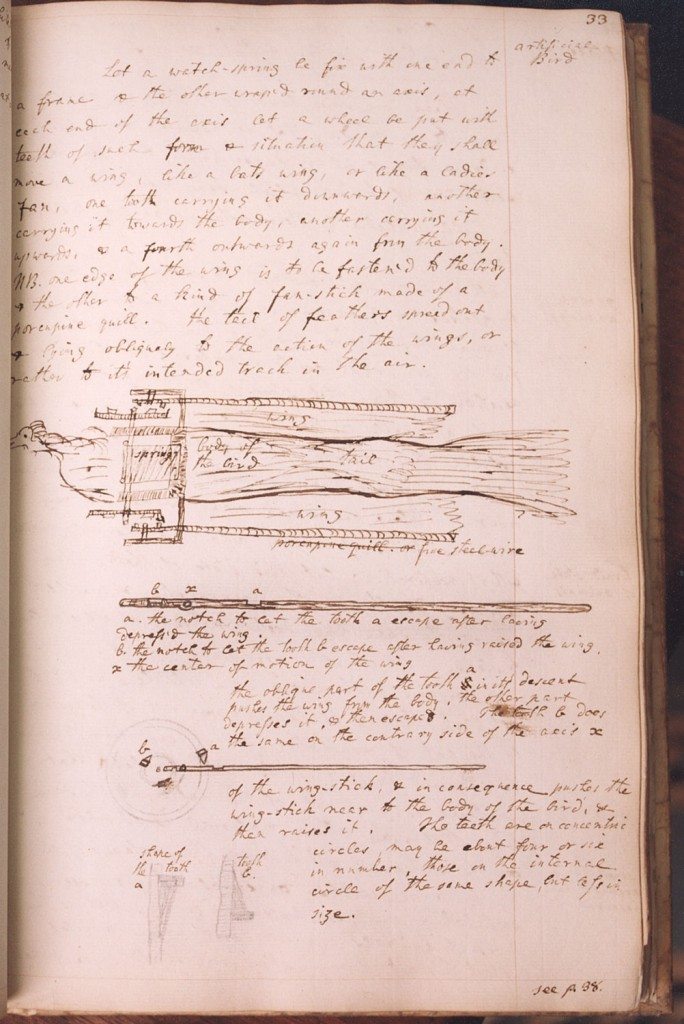 33
artificial
Bird
Let a watch-spring be fix with one end to
a frame & the other wrap'd round an axis, at
each end of the axis let a wheel be put with
teeth of such form & situation that they shall
move a wing, like a bats wing, or like a Ladies
fan, one tooth carrying it downwards, another
carrying it towards the body, another carrying it
upwards, & a fourth outwards again from the body.
NB. one edge of the wing is to be fasten'd to the body
& the other to a kind of fan-stick made of a
porcupine quill. the tail of feathers spread out
& lying obliquely to the action of the wings, or
rather to it's intended track in the air.
wing
spring
body of
the bird
tail
wing
porcupine quill. or fine steel-wire
b x a
a. the notch to let the tooth a escape after having
depress'd the wing
b. the notch to let the tooth b escape after having raised the wing.
x the center of motion of the wing
the oblique part of the tooth a in its descent
pushes the wing from the body, the other part
depresses it, & then escapes. The tooth b does
the same on the contrary side of the axis x
b a
of the wing-stick, & in consequence pushes the
wing-stick near to the body of the bird, &
then raises it. The teeth are on concentric
circles, may be about four or six
in number, those on the internal
circle of the same shape, but less in
size.
shape of
the tooth
a
tooth
b.
see p. 38.